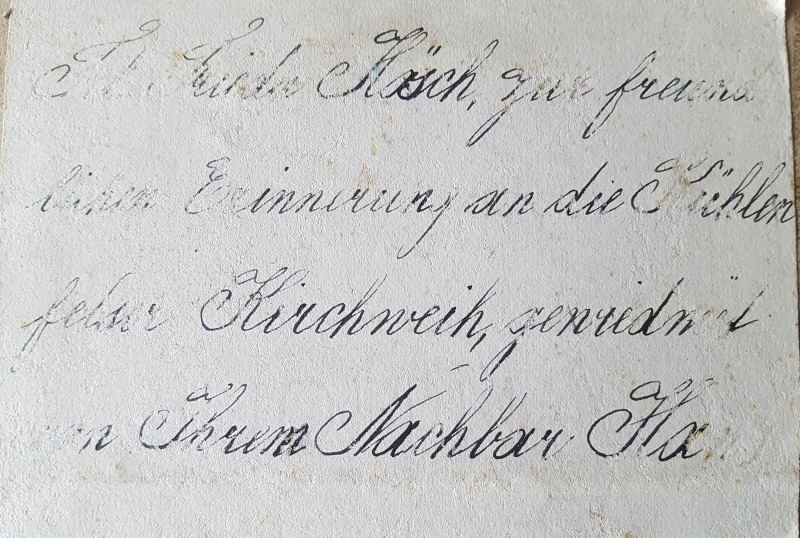 Frieda Hösch, zur freund
lichen Erinnerung an die Kühlen
feldner Kirchweih, genriedmet
von Ihrem Nachbar Ha